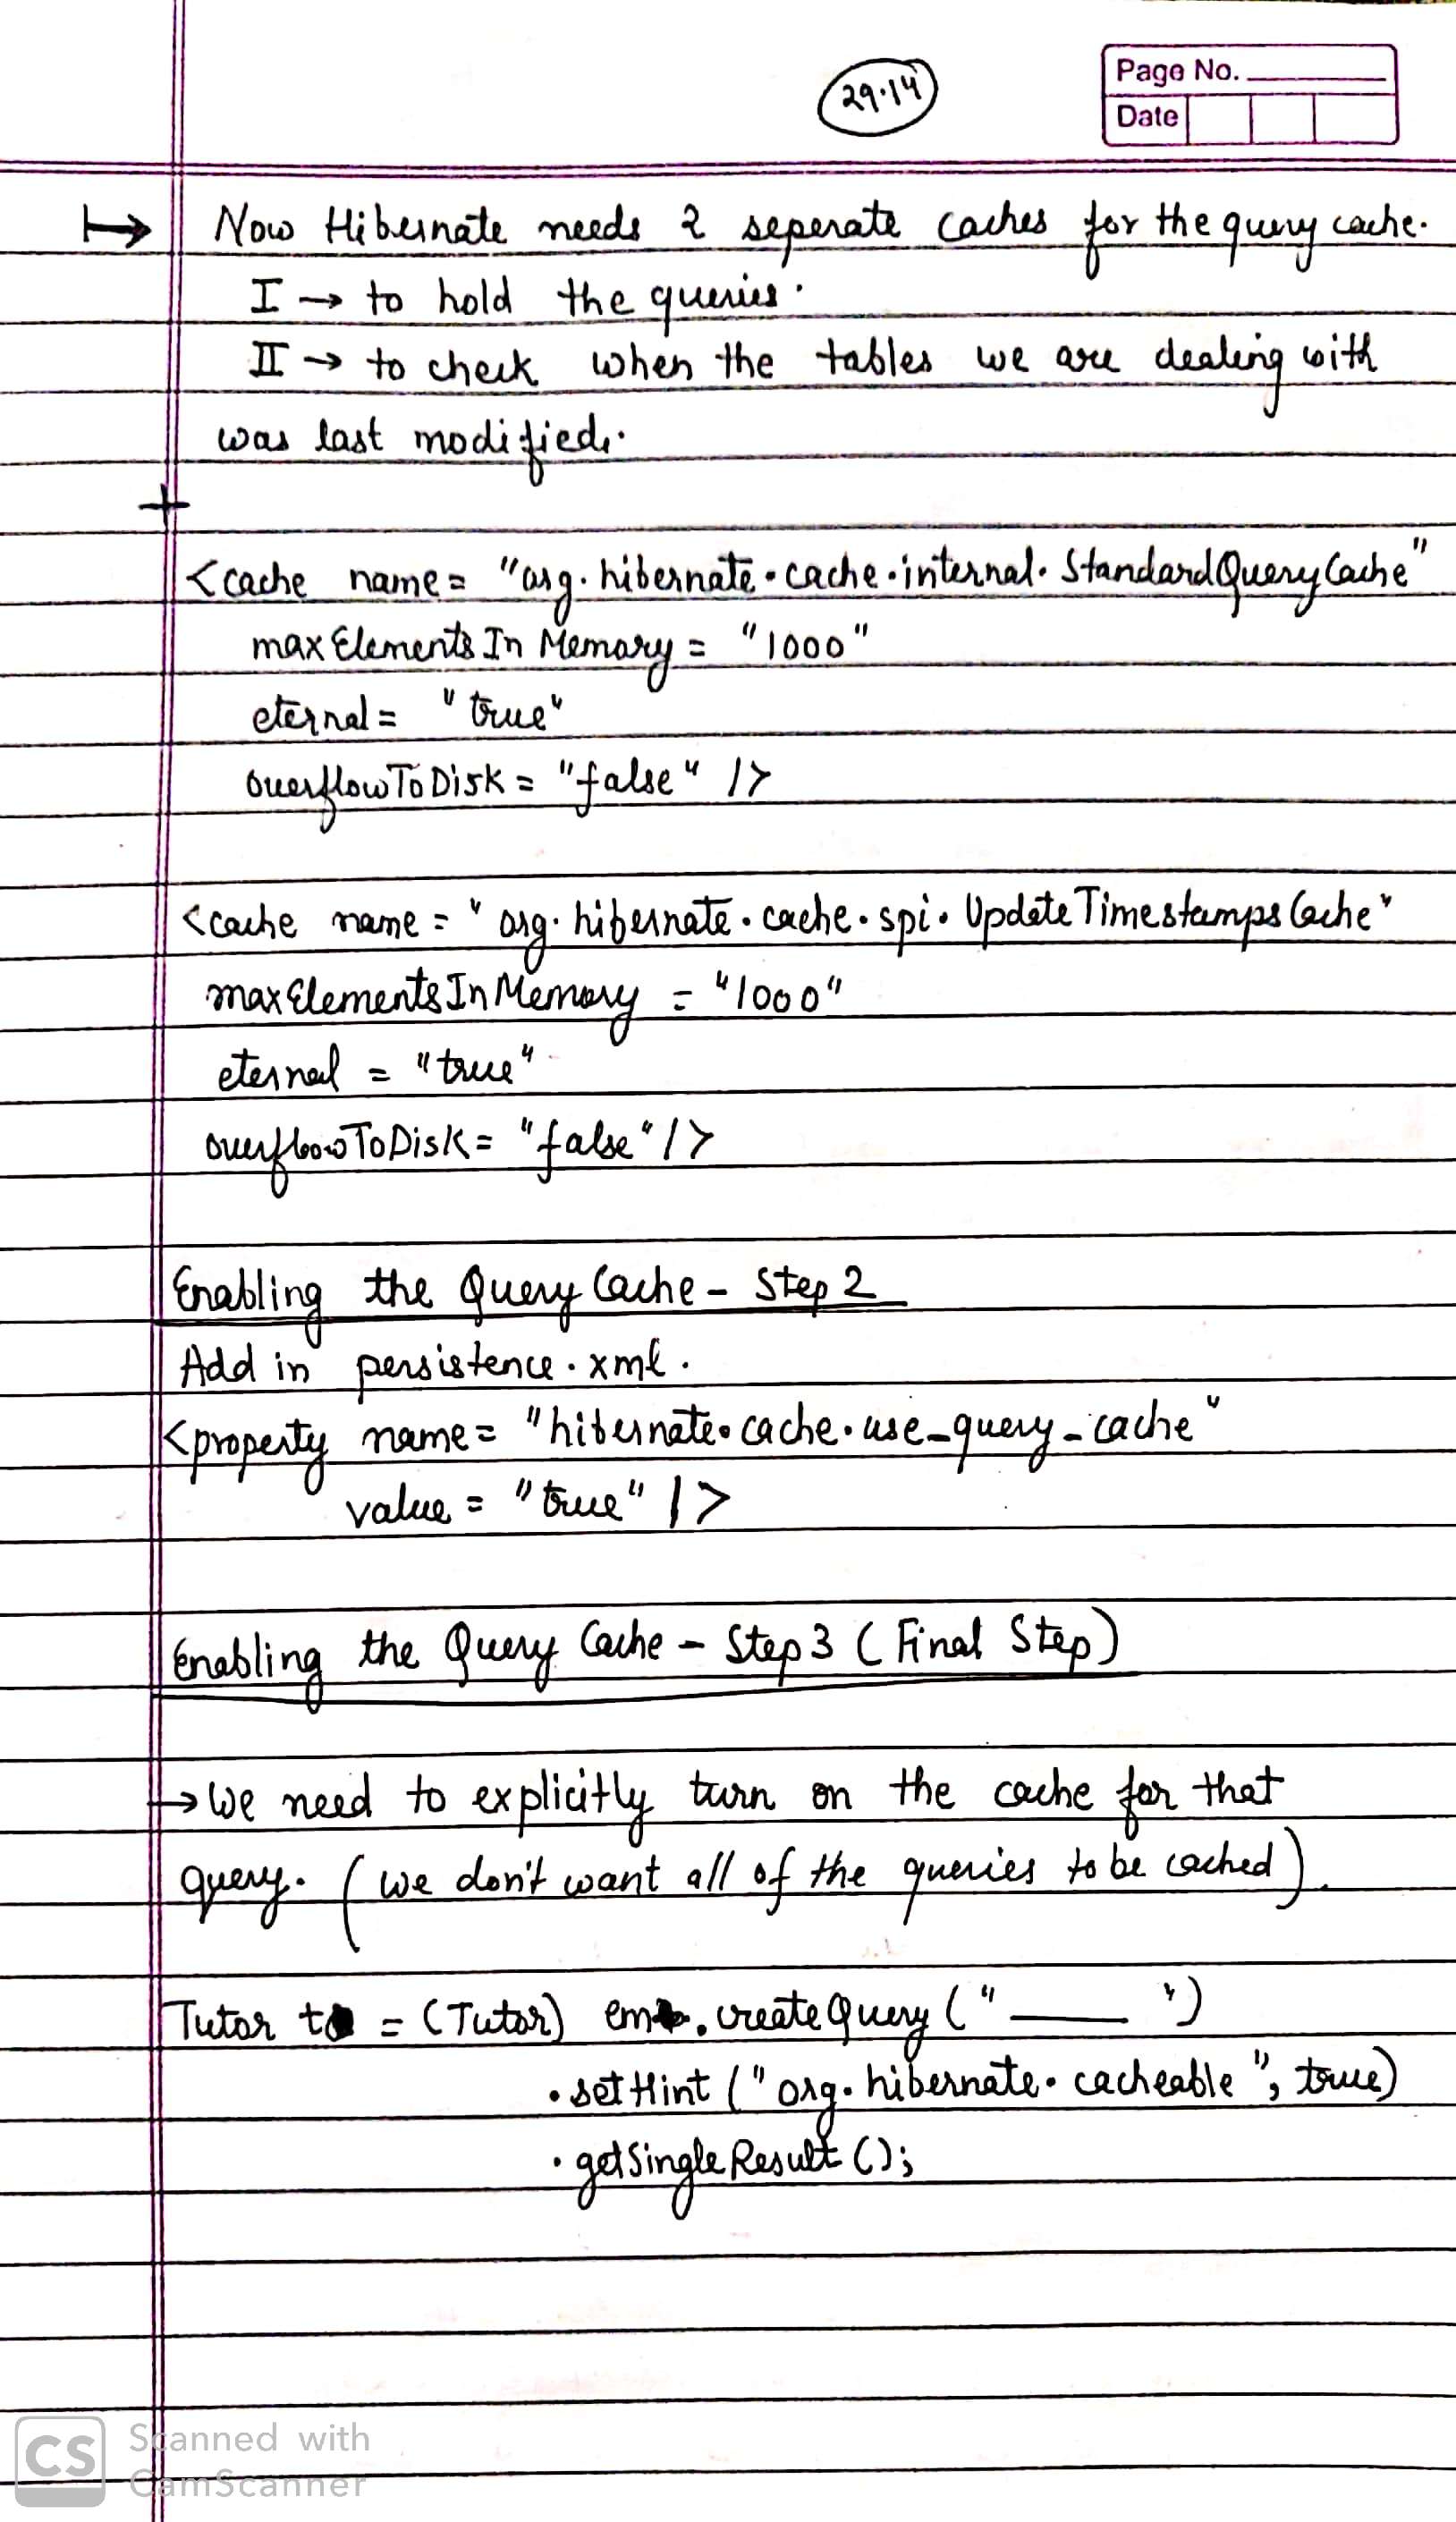 29.14
Page No.
Date
Now Hibernate needs 2 seperate caches for the query cache.
I → to hold the queries.
II → to check when the tables we are dealing with
was last modified.
<cache name= "org.hibernate.cache.internal.StandardQueryCache"
maxElementsInMemory = "1000"
eternal = "true"
overflowToDisk = "false" />
<cache name = "org.hibernate.cache.spi.UpdateTimestampsCache"
maxElementsInMemory = "1000"
eternal = "true"
overflowToDisk = "false"/>
Enabling the Query Cache - Step 2
Add in persistence.xml.
<property name= "hibernate.cache.use_query_cache"
value = "true" />
Enabling the Query Cache - Step 3 (Final Step)
→ We need to explicitly turn on the cache for that
query. (we don't want all of the queries to be cached).
Tutor t = (Tutor) em.createQuery ("____")
.setHint ("org.hibernate.cacheable", true)
.getSingleResult ();
CS Scanned with
CamScanner